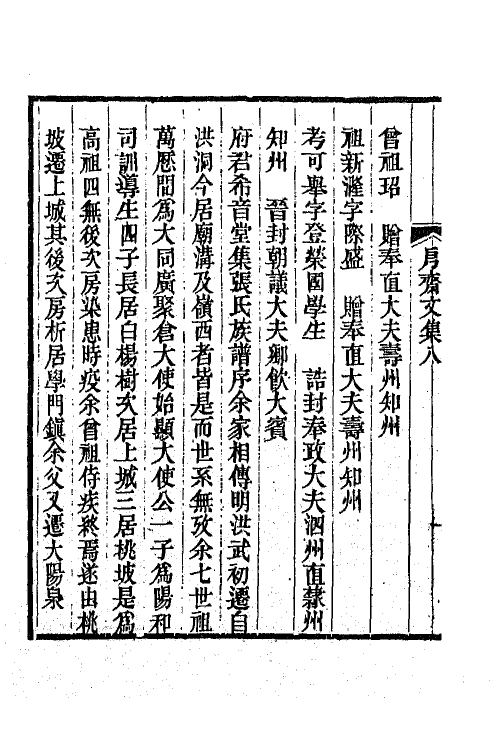 月齋文集八
曾祖玿　贈奉直大夫壽州知州
祖新瀣字際盛　贈奉直大夫壽州知州
考可舉字登榮國學生　誥封奉政大夫泗州直隸州
知州　晉封朝議大夫鄉飲大賓
府君希音堂集張氏族譜序余家相傳明洪武初遷自
洪洞今居廟溝及嶺西者皆是而世系無攷余七世祖
萬厯間為大同廣聚倉大使始顯大使公一子為陽和
司訓導生四子長居白楊樹次居上城三居桃坡是為
高祖四無後次房染患時疫余曾祖侍疾終焉遂由桃
坡遷上城其後次房析居學門鎮余父又遷大陽泉